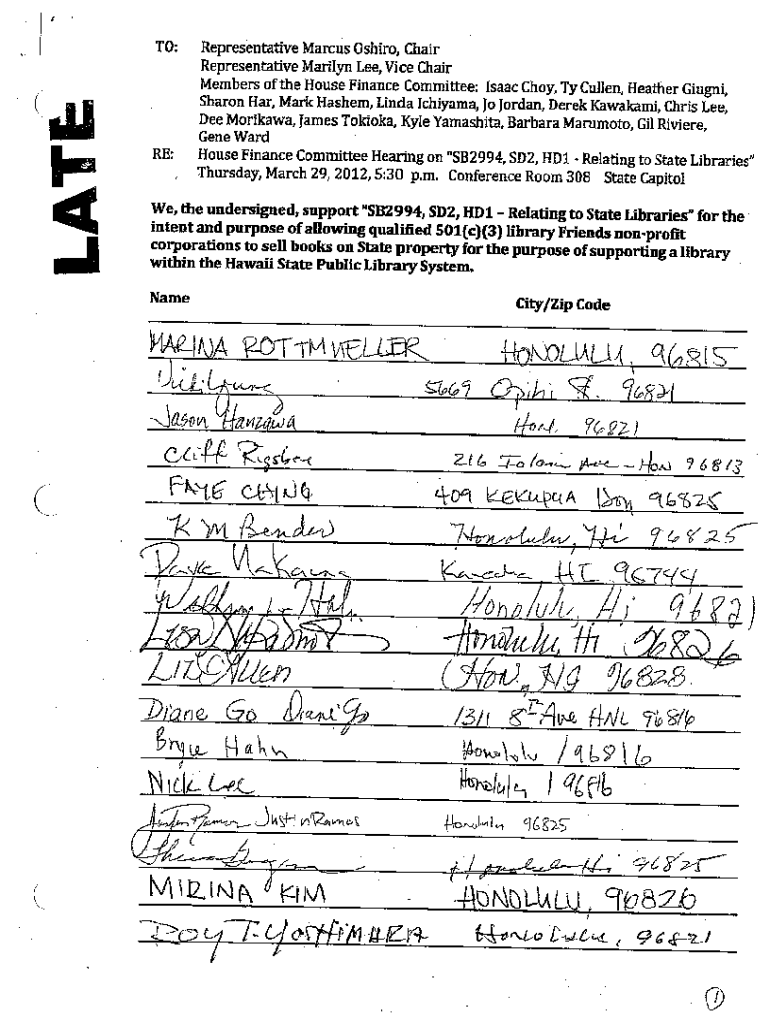 LATE
TO: Representative Marcus Oshiro, Chair
Representative Marilyn Lee, Vice Chair
Members of the House Finance Committee: Isaac Choy, Ty Cullen, Heather Giugni,
Sharon Har, Mark Hashem, Linda Ichiyama, Jo Jordan, Derek Kawakami, Chris Lee,
Dee Morikawa, James Tokioka, Kyle Yamashita, Barbara Marumoto, Gil Riviere,
Gene Ward
RE: House Finance Committee Hearing on "SB2994, SD2, HD1 - Relating to State Libraries"
Thursday, March 29, 2012, 5:30 p.m. Conference Room 308 State Capitol
We, the undersigned, support "SB2994, SD2, HD1 – Relating to State Libraries" for the
intent and purpose of allowing qualified 501(c)(3) library Friends non-profit
corporations to sell books on State property for the purpose of supporting a library
within the Hawaii State Public Library System.
Name City/Zip Code
MARINA ROTTMUELLER HONOLULU, 96815
5669 Opihi St. 96821
Jason Hanzawa Hon. 96821
Cliff 216 Ave - Hon 96813
FAYE CHING 409 KEKUPUA Hon 96825
K M Bender Honolulu, Hi 96825
Dave HI 96744
Honolulu, Hi 96821
Lisa Honolulu, HI 96826
LIZ Allen Hon, 96828
Diane Go Diane Go 1311 8th Ave HNL 96816
Bryce Hahn Honolulu / 96816
Nick Lee Honolulu / 96816
Justin Ramos Justin Ramos Honolulu 96825
Honolulu Hi 96825
MIRINA KIM HONOLULU, 96826
ROY T. YOSHIMURA HONOLULU, 96821
1